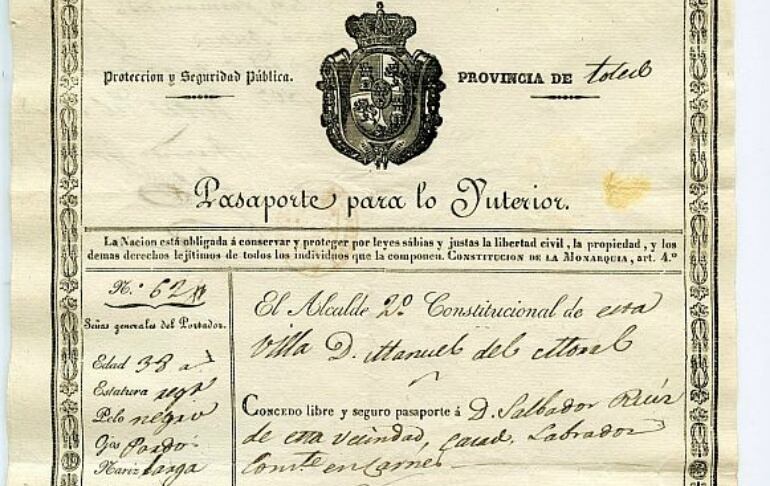 Proteccion y Seguridad Pública.
PROVINCIA DE Toledo
Pasaporte para lo Ynterior.
La Nacion está obligada á conservar y proteger por leyes sábias y justas la libertad civil, la propiedad, y los
demas derechos lejítimos de todos los individuos que la componen. CONSTITUCION DE LA MONARQUIA, art. 4.º
N.º 62
Señas generales del Portador.
Edad 38 a.
Estatura regr
Pelo négro
Ojos Pardo
Nariz larga
El Alcalde 2º Constitucional de esta
Villa D. Manuel del Moral
CONCEDO libre y seguro pasaporte á D. Salbador Ruiz
de esta vecindad, casad. Labrador
en Carnes